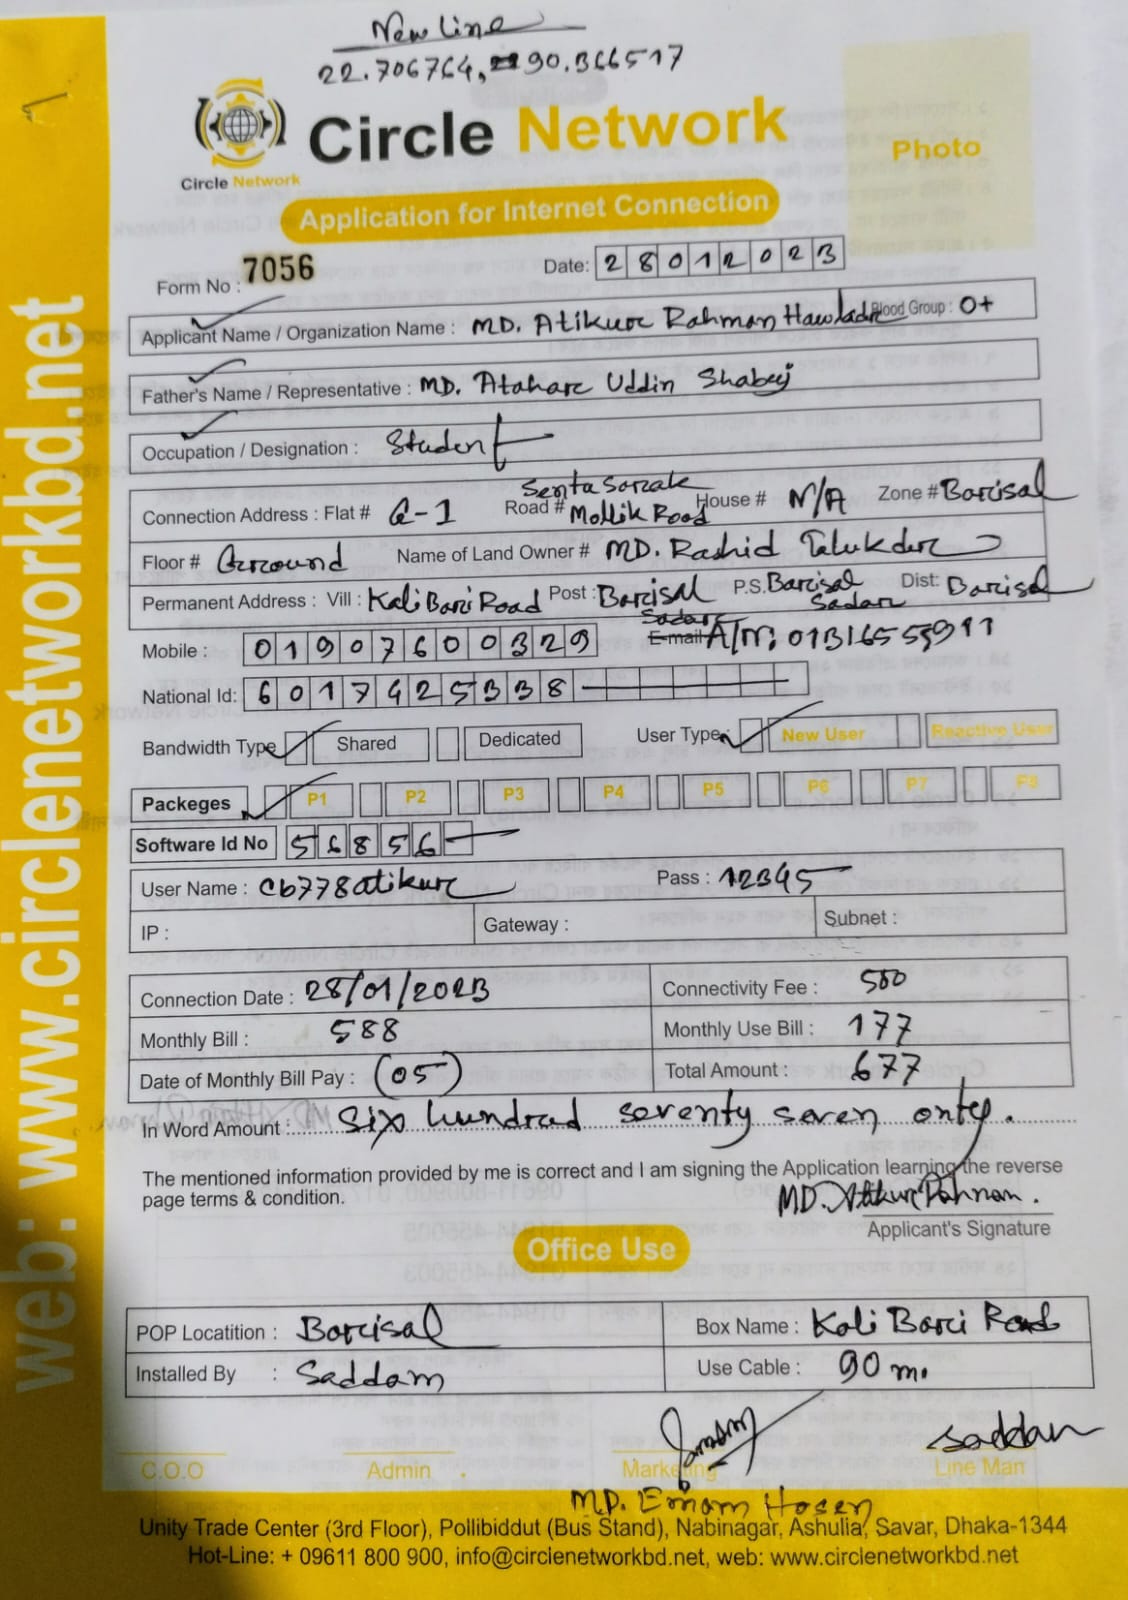 New Line
22.706764, 90.366517
Circle Network
Circle Network
Photo
Application for Internet Connection
Form No : 7056
Date: 28012023
Applicant Name / Organization Name : MD. Atikur Rahman Hawladr Blood Group : O+
Father's Name / Representative : MD. Atahar Uddin
Occupation / Designation : Student
Connection Address : Flat # G-1 Road # Mollik Road House # N/A Zone # Barisal
Floor # Ground Name of Land Owner # MD. Rashid Talukder
Permanent Address : Vill : Kali Bari Road Post : Barisal Sadar P.S. Barisal Sadar Dist: Barisal
Mobile : 01907600329 E-mail A/N: 01316559911
National Id: 6017425338
Bandwidth Type Shared Dedicated User Type New User Reactive User
Packeges P1 P2 P3 P4 P5 P6 P7 P8
Software Id No 56856
User Name : cb778atikur Pass : 12345
IP : Gateway : Subnet :
Connection Date : 28/01/2023 Connectivity Fee : 500
Monthly Bill : 588 Monthly Use Bill : 177
Date of Monthly Bill Pay : (05) Total Amount : 677
In Word Amount : Six hundrad seventy seven only.
The mentioned information provided by me is correct and I am signing the Application learning the reverse
page terms & condition.
MD. Atikur Rahman.
Applicant's Signature
Office Use
POP Locatition : Barisal Box Name : Kali Bari Road
Installed By : Saddam Use Cable : 90 m.
saddam
C.O.O Admin Marketing Line Man
MD. Emam Hosen
Unity Trade Center (3rd Floor), Pollibiddut (Bus Stand), Nabinagar, Ashulia, Savar, Dhaka-1344
Hot-Line: + 09611 800 900, info@circlenetworkbd.net, web: www.circlenetworkbd.net
web: www.circlenetworkbd.net